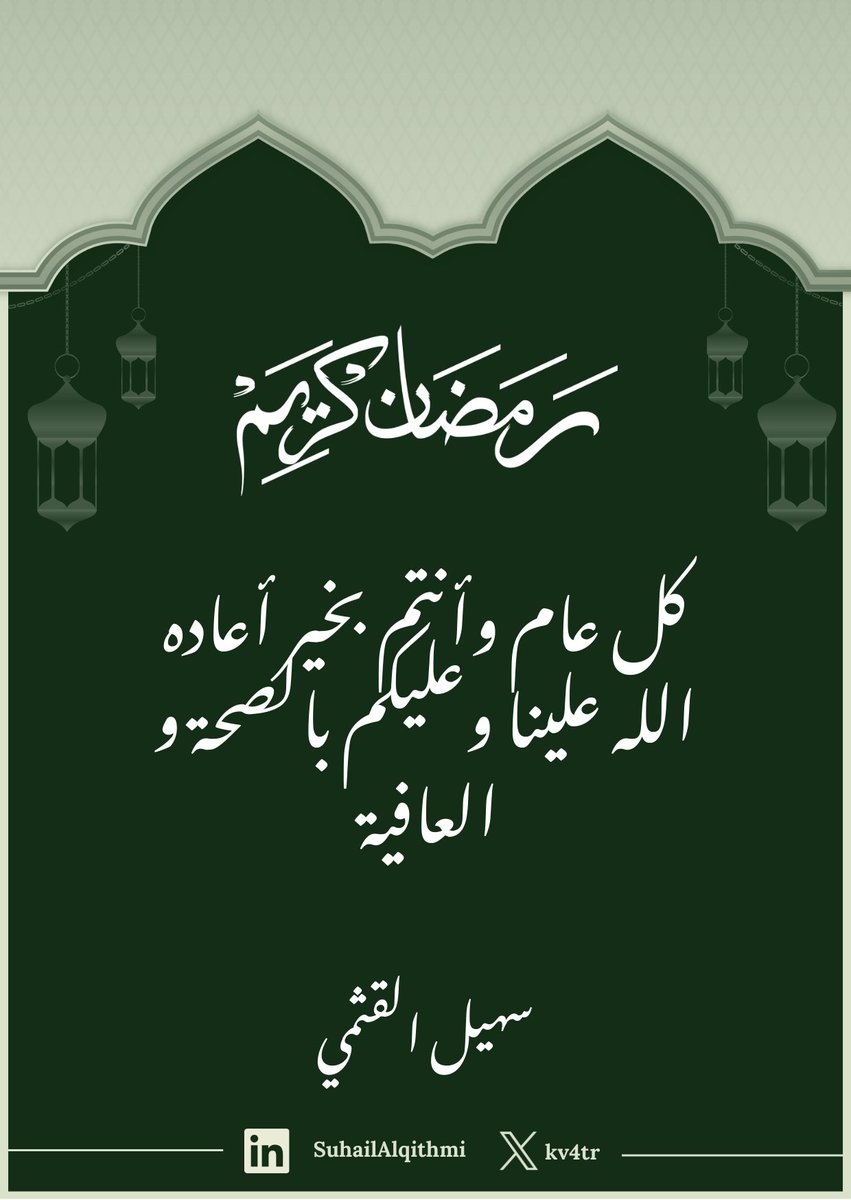 رمضان كريم
كل عام وأنتم بخير أعاده
الله علينا و عليكم بالصحة و
العافية
سهيل القثمي
in SuhailAlqithmi X kv4tr